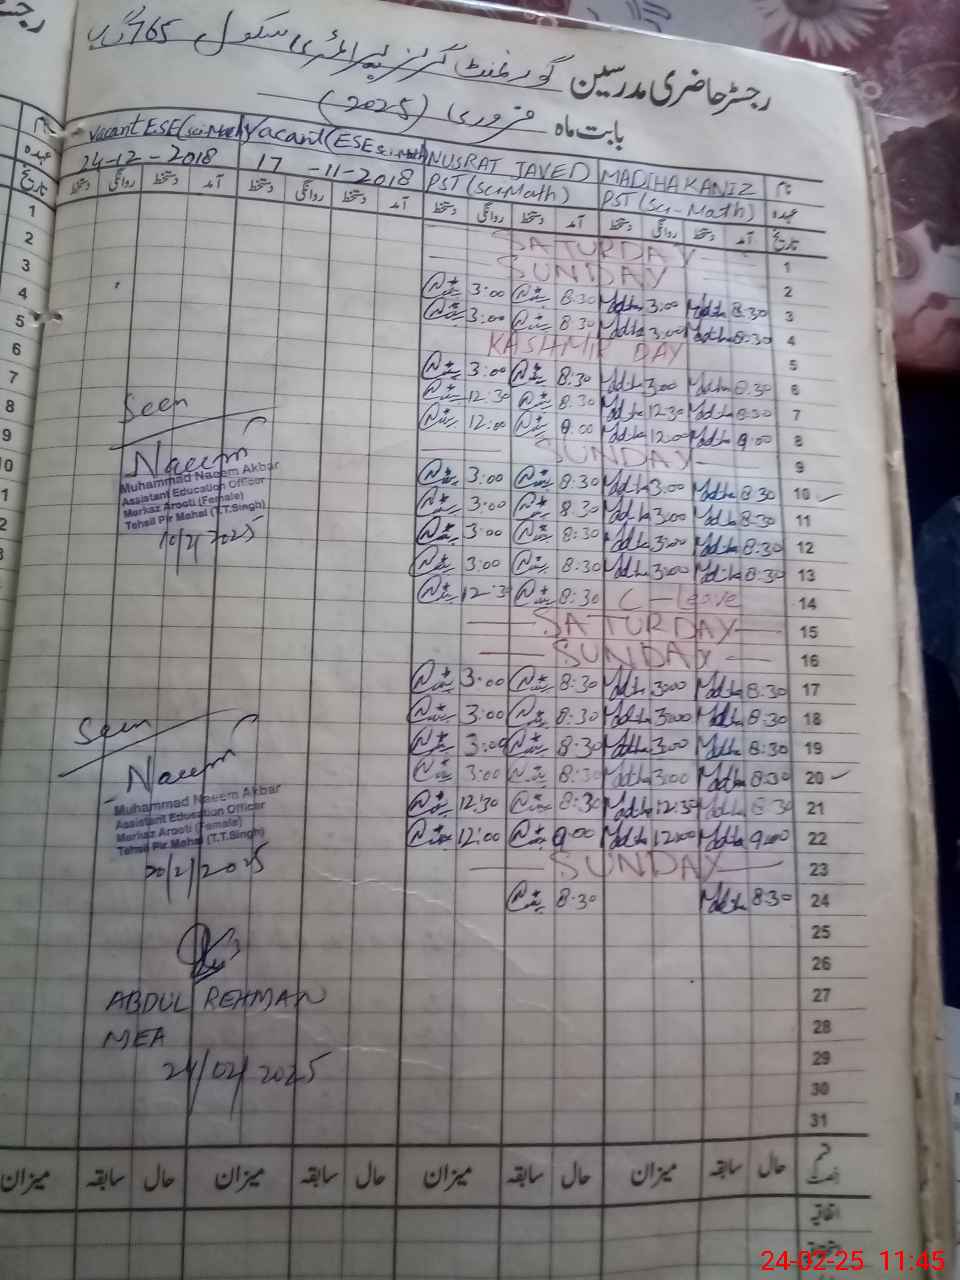 رجسٹر حاضری مدرسین گورنمنٹ گرلز پرائمری سکول 765 گ ب
بابت ماہ فروری (2025)
نام MADIHA KANIZ NUSRAT JAVED Vacant (ESE Sci-Math) Vacant ESE (Sci-Math)
عہدہ PST (Sci-Math) PST (Sci-Math) 17-11-2018 24-12-2018
تاریخ آمد دستخط روانگی دستخط آمد دستخط روانگی دستخط آمد دستخط روانگی دستخط آمد دستخط روانگی دستخط
1 SATURDAY
2 SUNDAY
3 8:30 Madiha 3:00 Madiha 8:30 3:00
4 8:30 Madiha 3:00 Madiha 8:30 3:00
5 KASHMIR DAY
6 8:30 Madiha 3:00 Madiha 8:30 3:00
7 8:30 Madiha 12:30 Madiha 8:30 12:30
8 9:00 Madiha 12:00 Madiha 9:00 12:00
9 SUNDAY
10 8:30 Madiha 3:00 Madiha 8:30 3:00
11 8:30 Madiha 3:00 Madiha 8:30 3:00
12 8:30 Madiha 3:00 Madiha 8:30 3:00
13 8:30 Madiha 3:00 Madiha 8:30 3:00
14 C-Leave 8:30 12:3
15 SATURDAY
16 SUNDAY
17 8:30 Madiha 3:00 Madiha 8:30 3:00
18 8:30 Madiha 3:00 Madiha 8:30 3:00
19 8:30 Madiha 3:00 Madiha 8:30 3:00
20 8:30 Madiha 3:00 Madiha 8:30 3:00
21 8:30 Madiha 12:30 Madiha 8:30 12:30
22 9:00 Madiha 12:00 Madiha 9:00 12:00
23 SUNDAY
24 8:30 Madiha 8:30
25
26
27
28
29
30
31
Seen
Naeem
Muhammad Naeem Akbar
Assistant Education Officer
Markaz Arooti (Female)
Tehsil Pir Mahal (T.T.Singh)
10/2/2025
Seen
Naeem
Muhammad Naeem Akbar
Assistant Education Officer
Markaz Arooti (Female)
Tehsil Pir Mahal (T.T.Singh)
20/2/2025
ABDUL REHMAN
MEA
24/02/2025
قسم رخصت حال سابقہ میزان حال سابقہ میزان حال سابقہ میزان حال سابقہ میزان
اتفاقیہ
24-02-25 11:45